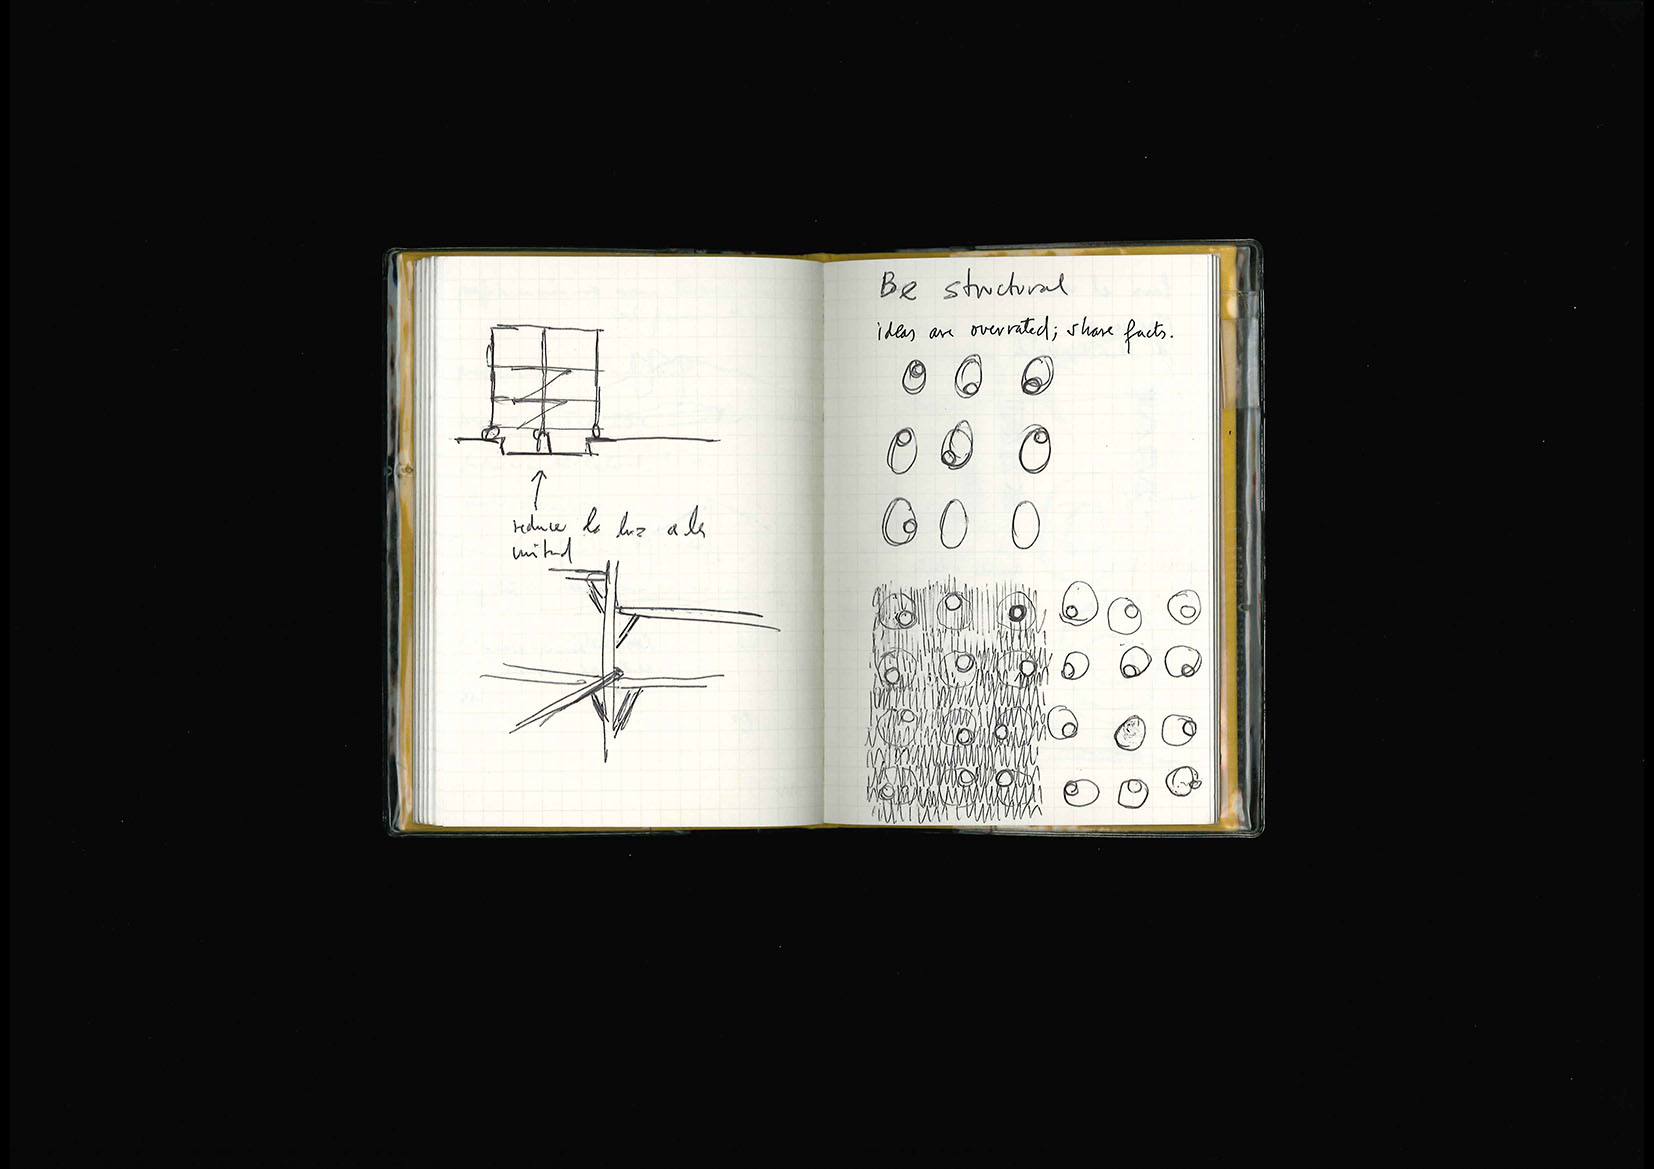 reduce la luz a la
mitad
Be structural
ideas are overrated; share facts.